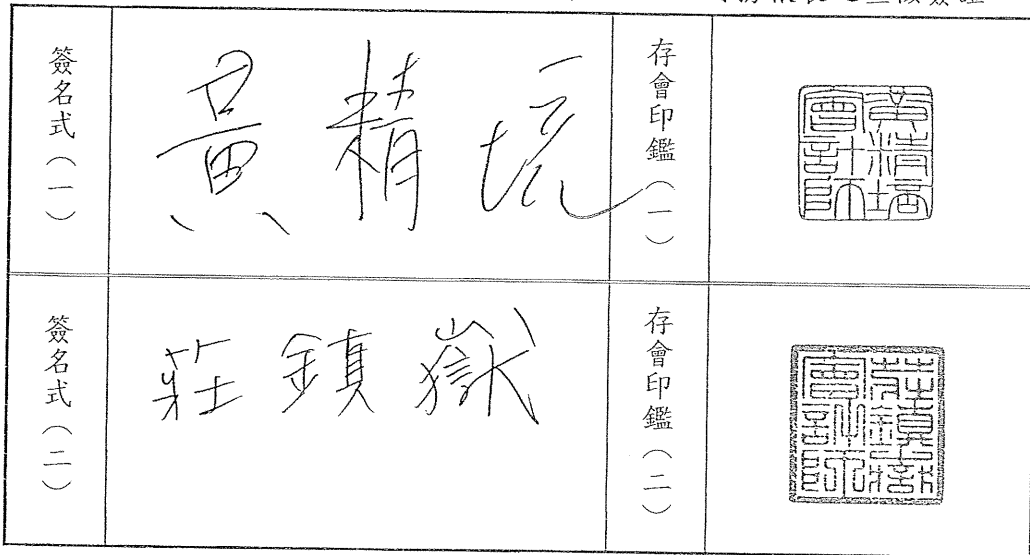 簽名式（一）
黃精
存會印鑑（一）
會計師
簽名式（二）
莊鎮嶽
存會印鑑（二）
莊鎮嶽會計師